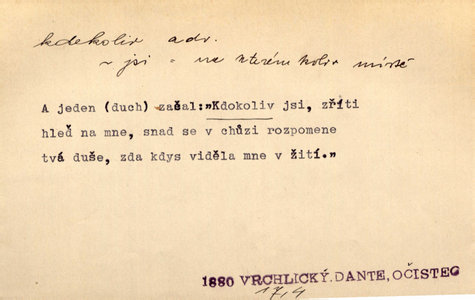 kdekoliv adv.
~ jsi = na kterémkoliv místě
A jeden (duch) začal:„Kdokoliv jsi, zříti
hleď na mne, snad se v chůzi rozpomene
tvá duše, zda kdys viděla mne v žití."
1880 VRCHLICKÝ.DANTE, OČISTEC
17,4